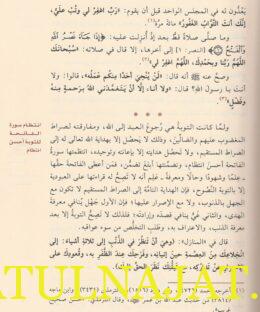 يعدّون له في المجلس الواحد قبل أن يقوم: «ربِّ اغفر لي وتُب عليّ،
إنك أنت التواب الغفور» مائة مرة(١).
وما صلّى صلاةً قطُّ بعد إذ أُنزلت عليه: ﴿إِذَا جَاءَ نَصْرُ اللَّهِ
وَالْفَتْحُ﴾ (النصر: ١) إلى آخرها، إلا قال في صلاته: «سبحانك
اللهم ربَّنا وبحمدك، اللهم اغفر لي»(٢).
وصحَّ عنه ﷺ أنه قال: «لن يُنجي أحدًا منكم عملُه»، قالوا: ولا
أنت يا رسول الله؟ قال: «ولا أنا، إلا أن يتغمَّدني الله برحمةٍ منه
وفضل»(٣).
* * *
ولما كانت التوبةُ هي رجوعَ العبد إلى الله، ومفارقتَه لصراط
المغضوب عليهم والضالين، وذلك لا يحصل إلا بهداية الله تعالى له إلى
الصراط المستقيم، ولا تحصل هدايته إلا بإعانته وتوحيده، انتظمتها سورة
الفاتحة أحسن انتظام، وتضمنتها أبلغ تضمن، فمن أعطى الفاتحة حقَّها
علمًا وشهودًا وحالًا ومعرفةً ـ علم أنه لا تصحُّ له قراءتها على العبودية
إلا بالتوبة النصوح، فإن الهداية التامة إلى الصراط المستقيم لا تكون مع
الجهل بالذنوب، ولا مع الإصرار عليها؛ فإن الأول جهلٌ يُنافي معرفة
الهدى، والثاني غيٌّ ينافي قصده وإرادته؛ فلذلك لا تصحُّ التوبة إلا بعد
معرفة الذنب، والاعتراف به، وطلب التخلص من سوء عواقبه.
قال في «المنازل»: (وهي أن تنظر في الذنب إلى ثلاثة أشياء: إلى
انخلاعك من العصمة حين إتيانه، وفرحك عند الظفر به، وقعودك على
انتظام سورة
الفاتحة
للتوبة أحسن
انتظام
ATULNAJAT.